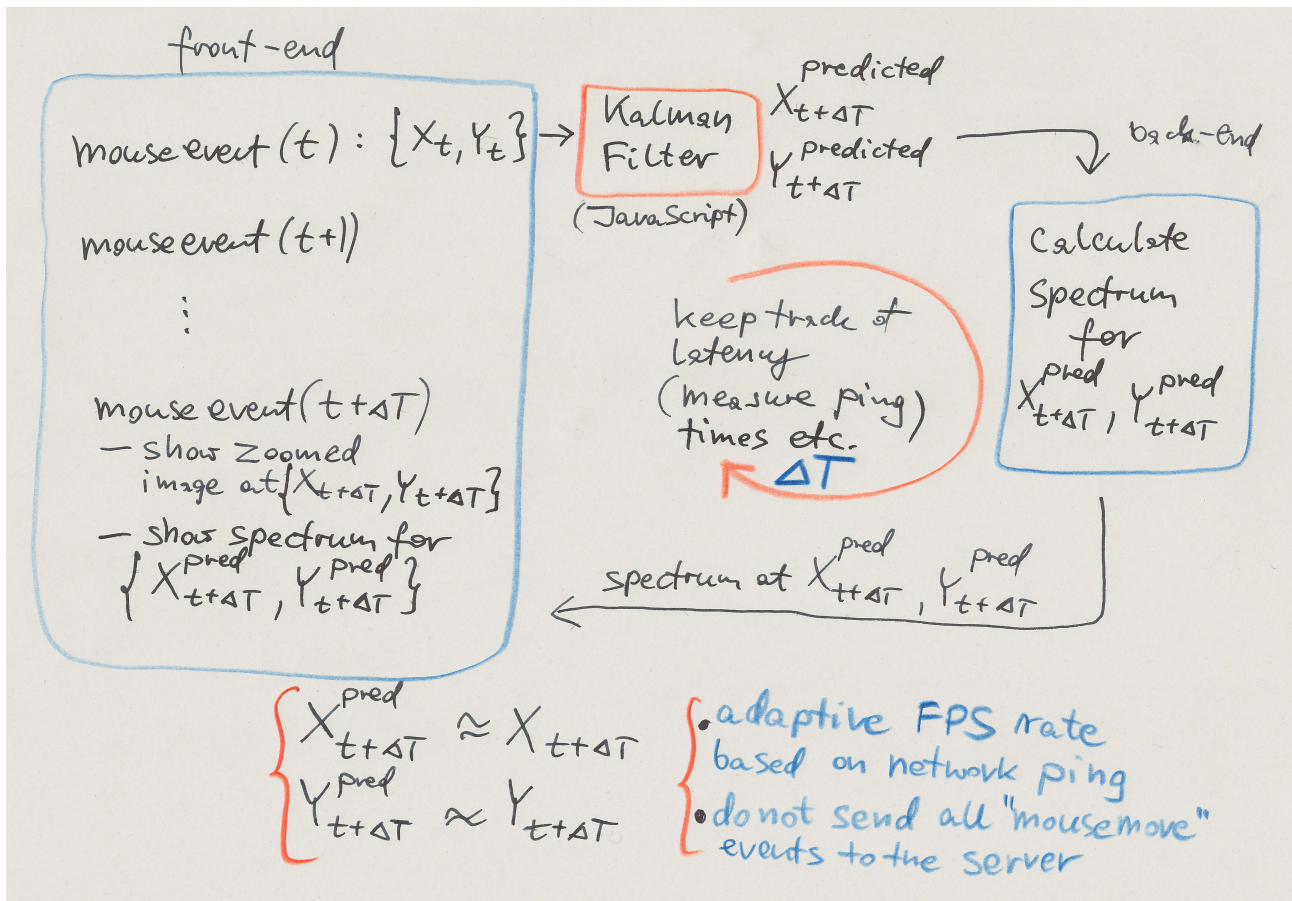 front-end
mouse event (t) : {Xt, Yt}
mouse event (t+1)
⋮
mouse event (t+ΔT)
— show zoomed
image at {Xt+ΔT, Yt+ΔT}
— show spectrum for
{X^pred t+ΔT, Y^pred t+ΔT}
Kalman
Filter
(JavaScript)
X^predicted t+ΔT
Y^predicted t+ΔT
back-end
Calculate
Spectrum
for
X^pred t+ΔT, Y^pred t+ΔT
keep track of
latency
(measure ping)
times etc.
ΔT
spectrum at X^pred t+ΔT, Y^pred t+ΔT
X^pred t+ΔT ≈ Xt+ΔT
Y^pred t+ΔT ≈ Yt+ΔT
• adaptive FPS rate
based on network ping
• do not send all "mousemove"
events to the server